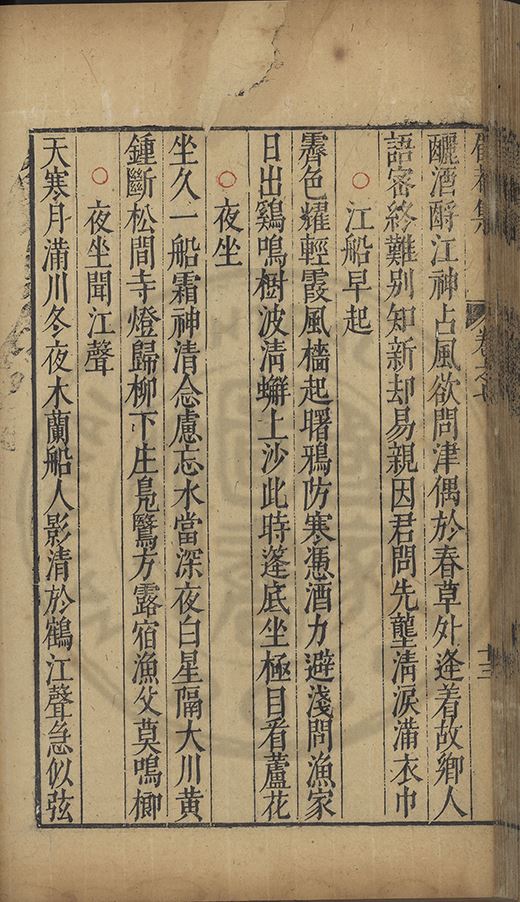 卷之七
十三
釃酒酹江神占風欲問津偶於春草外逢着故鄉人
語審終難別知新却易親因君問先壟清淚滿衣巾
○江船早起
霽色耀輕霞風檣起曙鴉防寒憑酒力避淺問漁家
日出鷄鳴樹波淸蠏上沙此時篷底坐極目看蘆花
○夜坐
坐久一船霜神清念慮忘水當深夜白星隔大川黄
鍾斷松間寺燈歸柳下庄鳧鷖方露宿漁父莫鳴榔
○夜坐聞江聲
天寒月滿川冬夜木蘭船人影清於鶴江聲急似弦